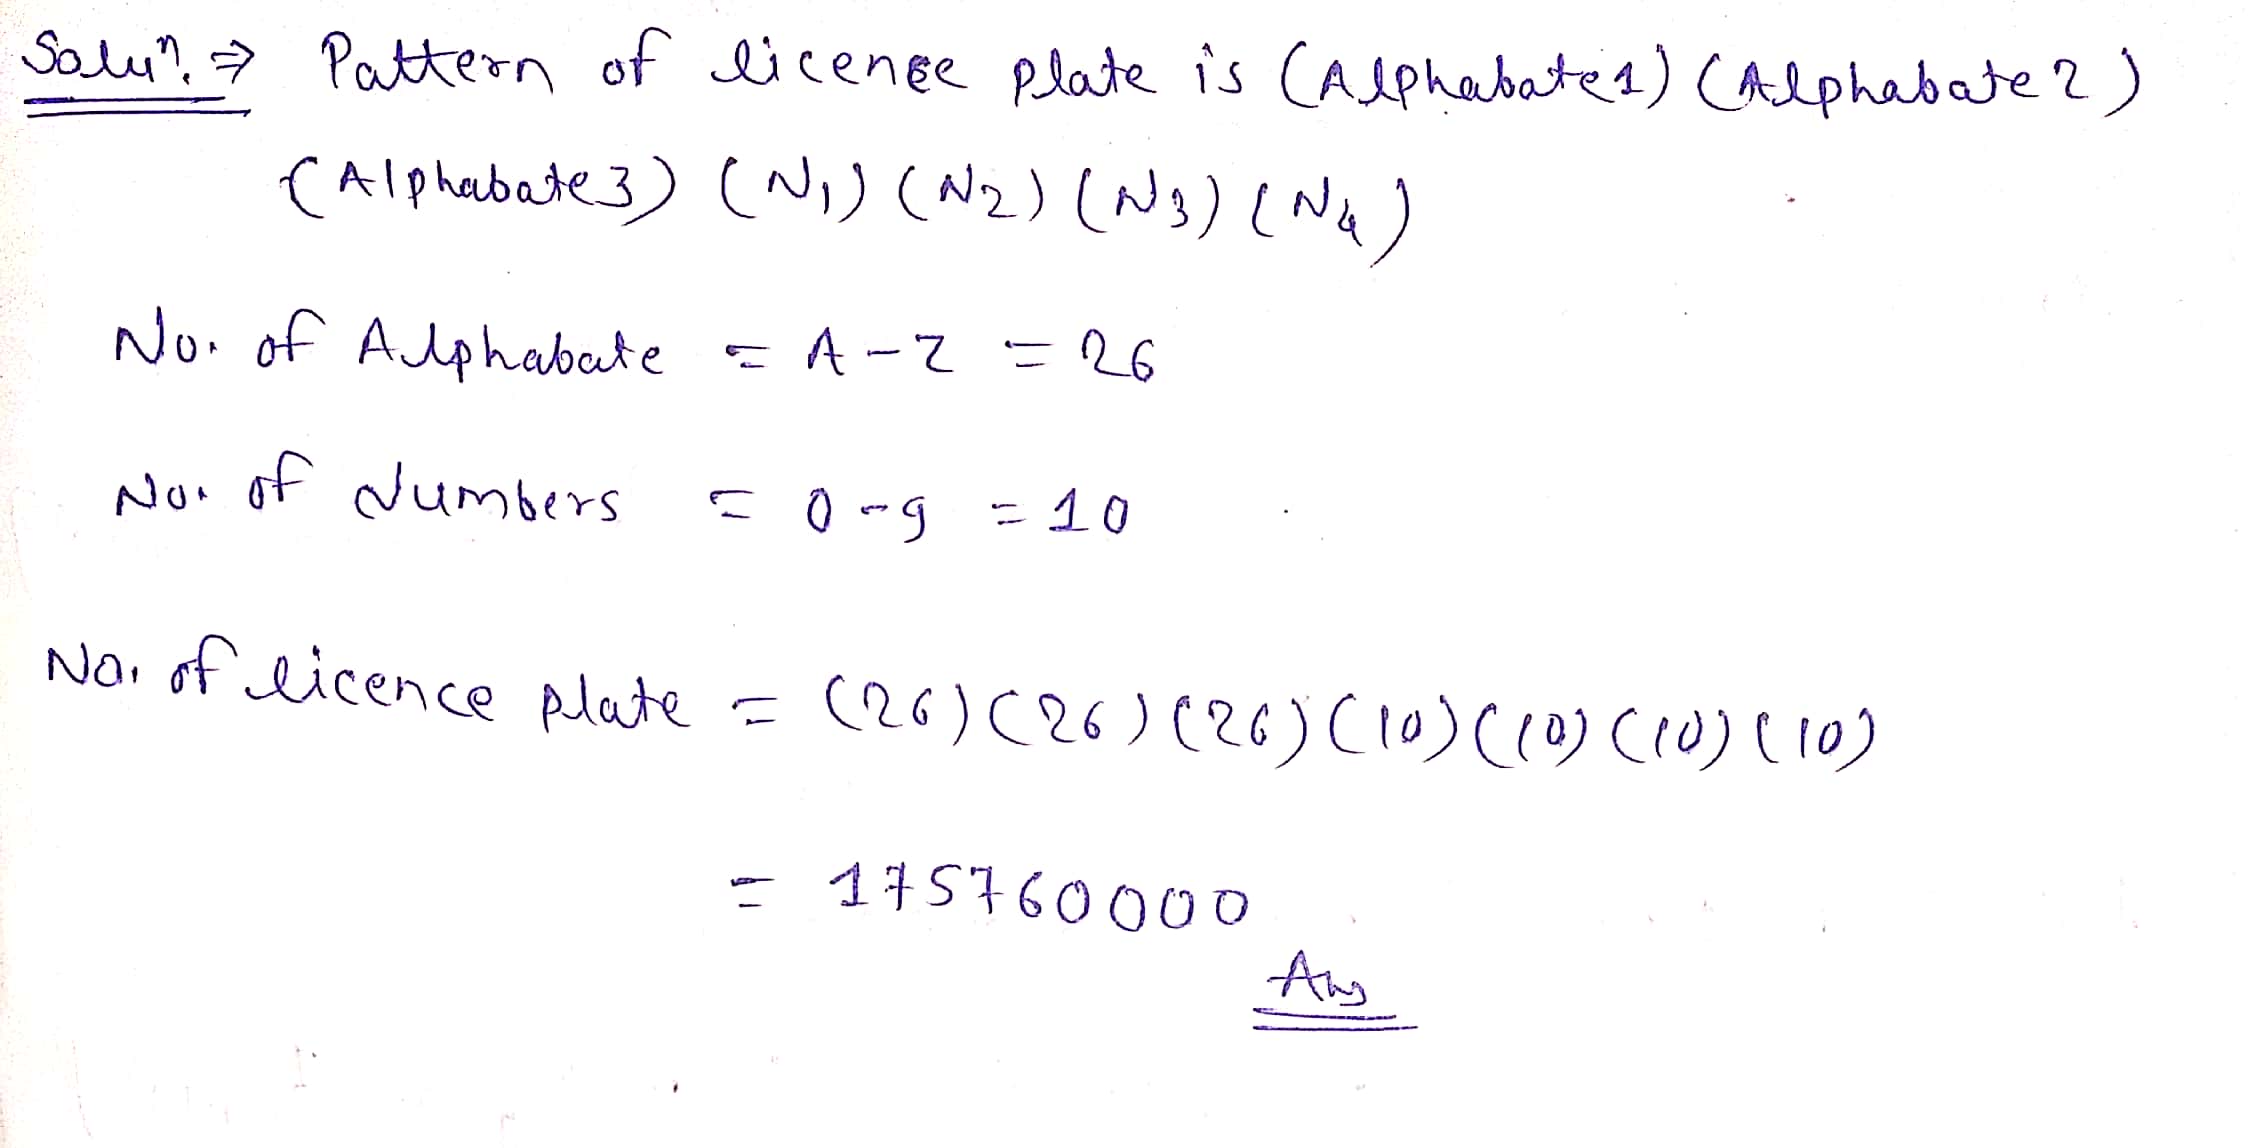 Solun. ⇒ Pattern of license plate is (Alphabate1) (Alphabate2)
(Alphabate3) (N1) (N2) (N3) (N4)
No. of Alphabate = A-Z = 26
No. of Numbers = 0-9 = 10
No. of licence plate = (26)(26)(26)(10)(10)(10)(10)
= 175760000
Ans